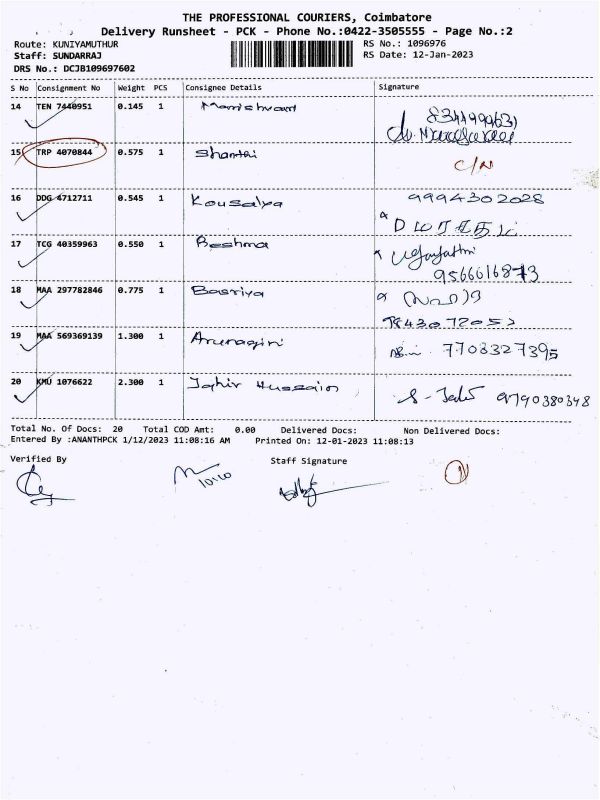 THE PROFESSIONAL COURIERS, Coimbatore
Delivery Runsheet - PCK - Phone No.:0422-3505555 - Page No.:2
Route: KUNIYAMUTHUR
RS No.: 1096976
Staff: SUNDARRAJ
RS Date: 12-Jan-2023
DRS No.: DCJB109697602
S No Consignment No Weight PCS Consignee Details Signature
14 TEN 7440951 0.145 1
15 TRP 4070844 0.575 1 Shanthi C/N
16 DDG 4712711 0.545 1 Kousalya 9994302028
17 TCG 40359963 0.550 1 Reshma
9566616873
18 MAA 297782846 0.775 1 Basriya
19 MAA 569369139 1.300 1 Arunagiri 7708327395
20 KMU 1076622 2.300 1 Jahir Hussain 9790380348
Total No. Of Docs: 20 Total COD Amt: 0.00 Delivered Docs: Non Delivered Docs:
Entered By :ANANTHPCK 1/12/2023 11:08:16 AM Printed On: 12-01-2023 11:08:13
Verified By Staff Signature